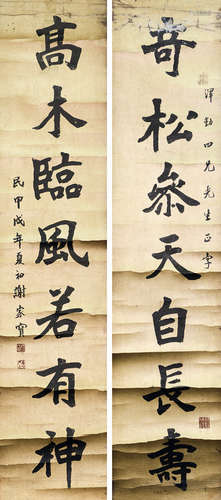 奇松参天自長壽
渭勤四兄先生正字
高木臨風若有神
民甲戌年夏初謝家寶